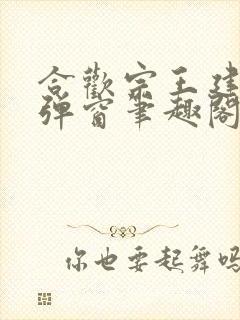 合歡宗王建
彈窗筆趣閣
你也要起舞嗎